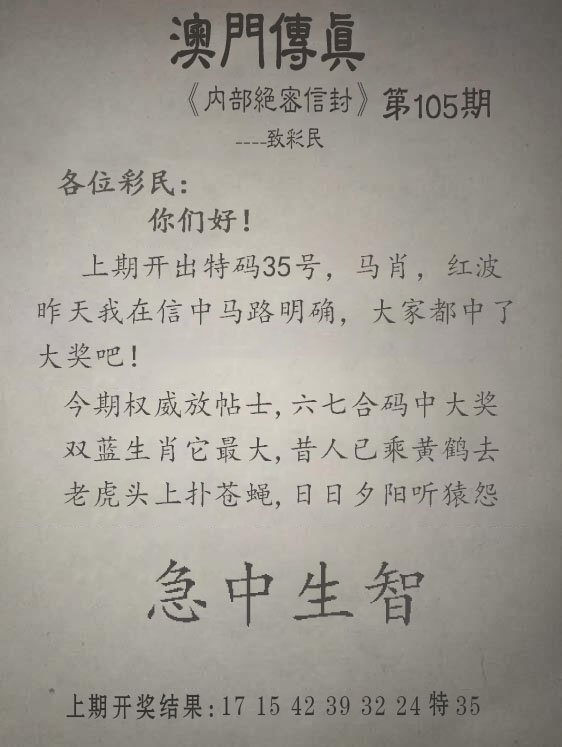 澳門傳真
《内部絕密信封》第105期
----致彩民
各位彩民：
你们好！
上期开出特码35号，马肖，红波
昨天我在信中马路明确，大家都中了
大奖吧！
今期权威放帖士,六七合码中大奖
双蓝生肖它最大,昔人已乘黄鹤去
老虎头上扑苍蝇,日日夕阳听猿怨
急中生智
上期开奖结果:17 15 42 39 32 24 特 35